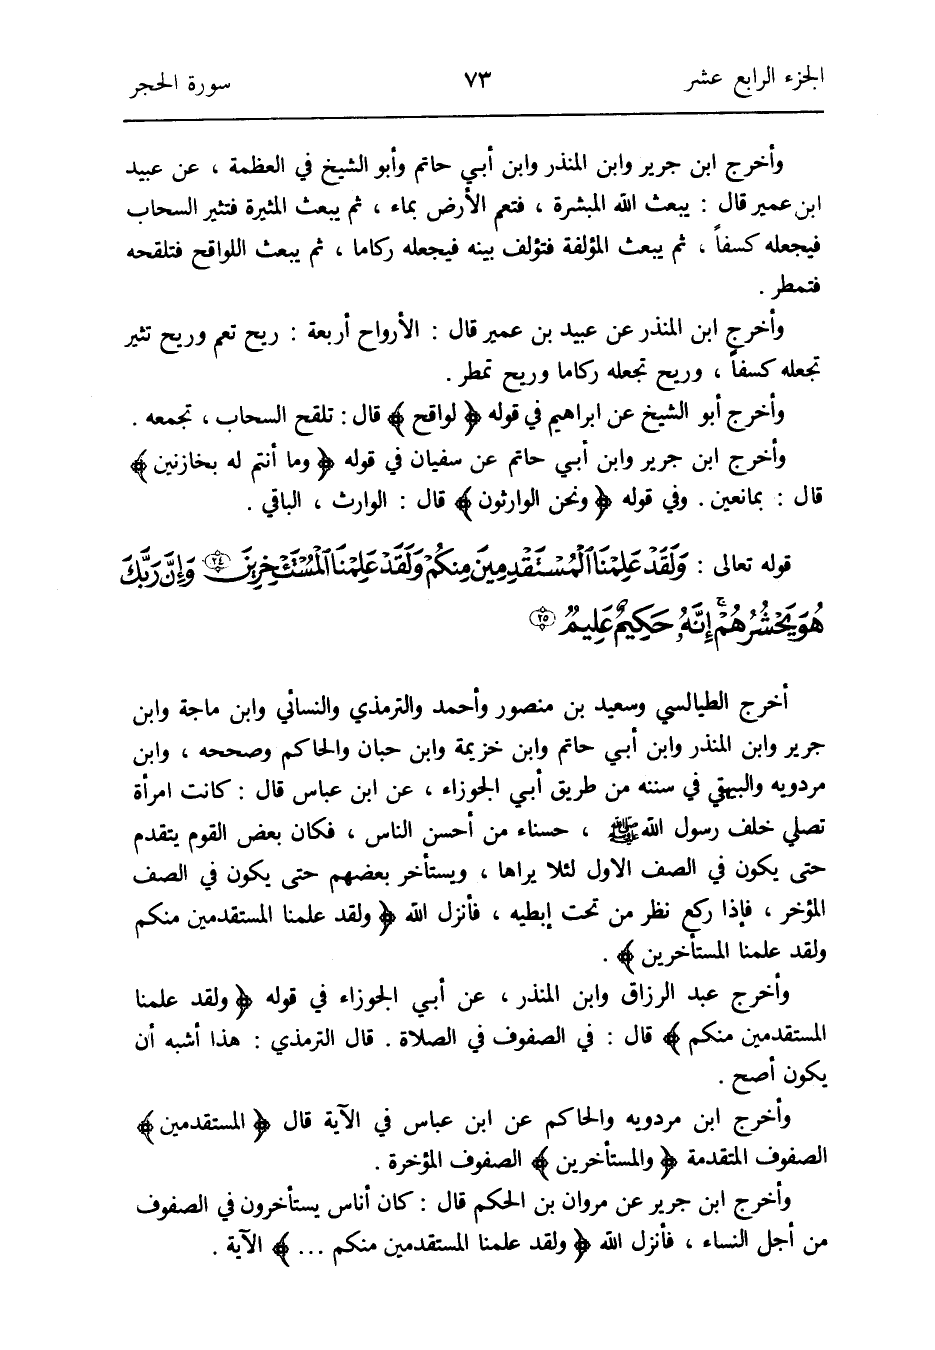 الجزء الرابع عشر ٧٣ سورة الحجر
وأخرج ابن جرير وابن المنذر وابن أبي حاتم وأبو الشيخ في العظمة ، عن عبيد
ابن عمير قال : يبعث الله المبشرة ، فتعم الأرض بماء ، ثم يبعث المثيرة فتثير السحاب
فيجعله كسفاً ، ثم يبعث المؤلفة فتؤلف بينه فيجعله ركاما ، ثم يبعث اللواقح فتلقحه
فتمطر .
وأخرج ابن المنذر عن عبيد بن عمير قال : الأرواح أربعة : ريح تعم وريح تثير
تجعله كسفاً ، وريح تجعله ركاما وريح تمطر .
وأخرج أبو الشيخ عن ابراهيم في قوله ﴿ لواقح ﴾ قال : تلقح السحاب ، تجمعه .
وأخرج ابن جرير وابن أبي حاتم عن سفيان في قوله ﴿ وما أنتم له بخازنين ﴾
قال : بمانعين . وفي قوله ﴿ ونحن الوارثون ﴾ قال : الوارث ، الباقي .
قوله تعالى : وَلَقَدْ عَلِمْنَا الْمُسْتَقْدِمِينَ مِنكُمْ وَلَقَدْ عَلِمْنَا الْمُسْتَـْٔخِرِينَ ۝٢٤ وَإِنَّ رَبَّكَ
هُوَ يَحْشُرُهُمْ ۚ إِنَّهُۥ حَكِيمٌ عَلِيمٌ ۝٢٥
أخرج الطيالسي وسعيد بن منصور وأحمد والترمذي والنسائي وابن ماجة وابن
جرير وابن المنذر وابن أبي حاتم وابن خزيمة وابن حبان والحاكم وصححه ، وابن
مردويه والبيهقي في سننه من طريق أبي الجوزاء ، عن ابن عباس قال : كانت امرأة
تصلي خلف رسول الله ﷺ ، حسناء من أحسن الناس ، فكان بعض القوم يتقدم
حتى يكون في الصف الاول لئلا يراها ، ويستأخر بعضهم حتى يكون في الصف
المؤخر ، فإذا ركع نظر من تحت إبطيه ، فأنزل الله ﴿ ولقد علمنا المستقدمين منكم
ولقد علمنا المستأخرين ﴾ .
وأخرج عبد الرزاق وابن المنذر ، عن أبي الجوزاء في قوله ﴿ ولقد علمنا
المستقدمين منكم ﴾ قال : في الصفوف في الصلاة . قال الترمذي : هذا أشبه أن
يكون أصح .
وأخرج ابن مردويه والحاكم عن ابن عباس في الآية قال ﴿ المستقدمين ﴾
الصفوف المتقدمة ﴿ والمستأخرين ﴾ الصفوف المؤخرة .
وأخرج ابن جرير عن مروان بن الحكم قال : كان أناس يستأخرون في الصفوف
من أجل النساء ، فأنزل الله ﴿ ولقد علمنا المستقدمين منكم ... ﴾ الآية .